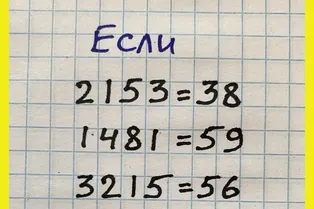 Если
2153=38
1481=59
3215=56